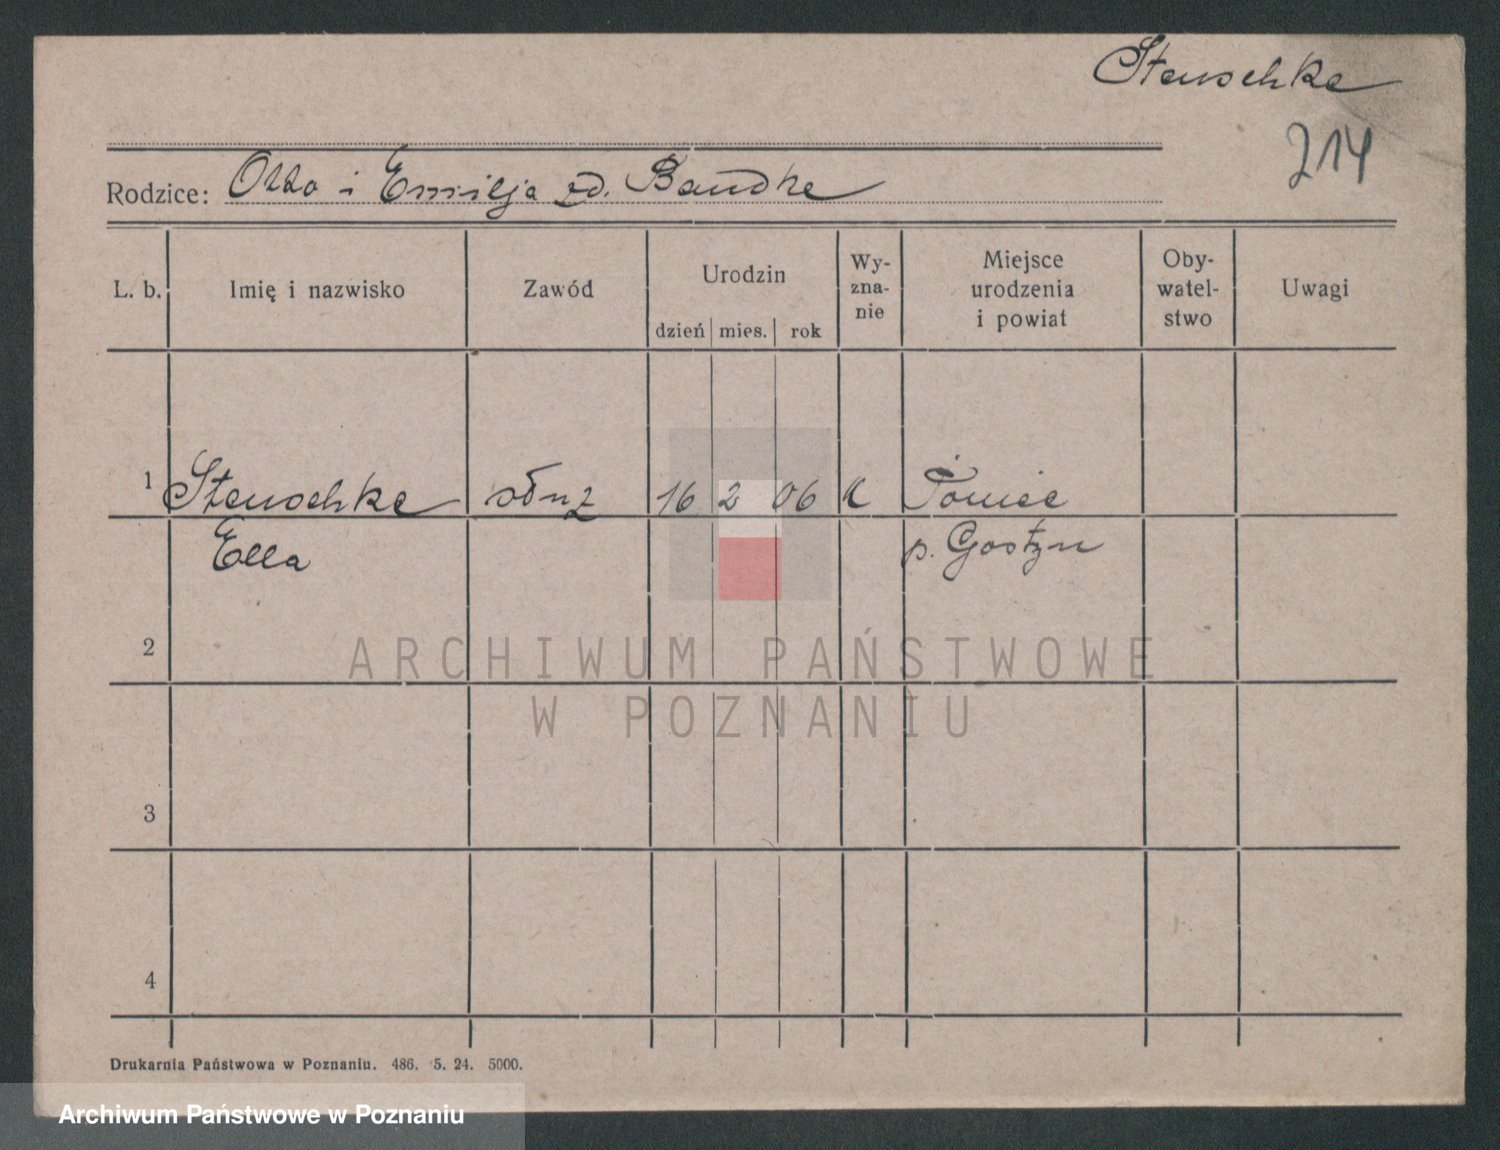 Stenschke
214
Rodzice: Otto i Emilja zd. Bandke
L. b. Imię i nazwisko Zawód Urodzin dzień mies. rok Wy-zna-nie Miejsce urodzenia i powiat Oby-watel-stwo Uwagi
1 Stenschke służ 16 2 06 k
Ella p. Gostyn
2
ARCHIWUM PAŃSTWOWE
W POZNANIU
3
4
Drukarnia Państwowa w Poznaniu. 486. 5. 24. 5000.
Archiwum Państwowe w Poznaniu